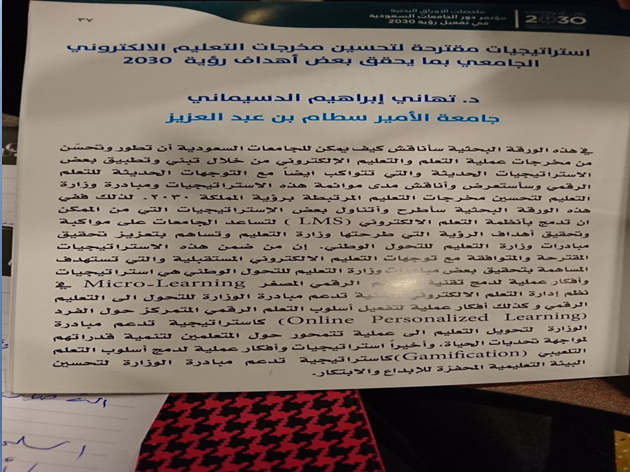 ملخصات الأوراق البحثية
مؤتمر دور الجامعات السعودية
في تفعيل رؤية 2030
2030
٣٧
استراتيجيات مقترحة لتحسين مخرجات التعليم الالكتروني
الجامعي بما يحقق بعض أهداف رؤية 2030
د. تهاني إبراهيم الدسيماني
جامعة الأمير سطام بن عبد العزيز
في هذه الورقة البحثية سأناقش كيف يمكن للجامعات السعودية أن تطور وتحسّن
من مخرجات عملية التعلم والتعليم الالكتروني من خلال تبني وتطبيق بعض
الاستراتيجيات الحديثة والتي تتواكب ايضاً مع التوجهات الحديثة للتعلم
الرقمي وسأستعرض وأناقش مدى موائمة هذه الاستراتيجيات ومبادرة وزارة
التعليم لتحسين مخرجات التعليم المرتبطة برؤية المملكة ٢٠٣٠. لذلك ففي
هذه الورقة البحثية سأطرح وأتناول بعض الإستراتيجيات التي من الممكن
ان تدمج بأنظمة التعلم الالكتروني (LMS) لتساعد الجامعات على مواكبة
وتحقيق أهداف الرؤية التي طرحتها وزارة التعليم وتساهم بتعزيز تحقيق
مبادرات وزارة التعليم للتحول الوطني. إن من ضمن هذه الاستراتيجيات
المقترحة والمتوافقة مع توجهات التعليم الالكتروني المستقبلية والتي تستهدف
المساهمة بتحقيق بعض وزارة التعليم للتحول الوطني هي استراتيجيات
وأفكار عملية لدمج تقنية الرقمي المصغر Micro-Learning في
نظم إدارة التعلم الالكتروني تدعم مبادرة الوزارة للتحول الى التعليم
الرقمي و كذلك أفكار عملية لتفعيل أسلوب التعلم الرقمي المتمركز حول الفرد
(Online Personalized Learning) كاستراتيجية تدعم مبادرة
الوزارة لتحويل التعليم الى عملية تتمحور حول المتعلمين لتنمية قدراتهم
لمواجهة تحديات الحياة. وأخيراً استراتيجيات وأفكار عملية لدمج أسلوب التعلم
التلعيبي (Gamification)كاستراتيجية تدعم مبادرة الوزارة لتحسين
البيئة التعليمية المحفزة للإبداع والابتكار.